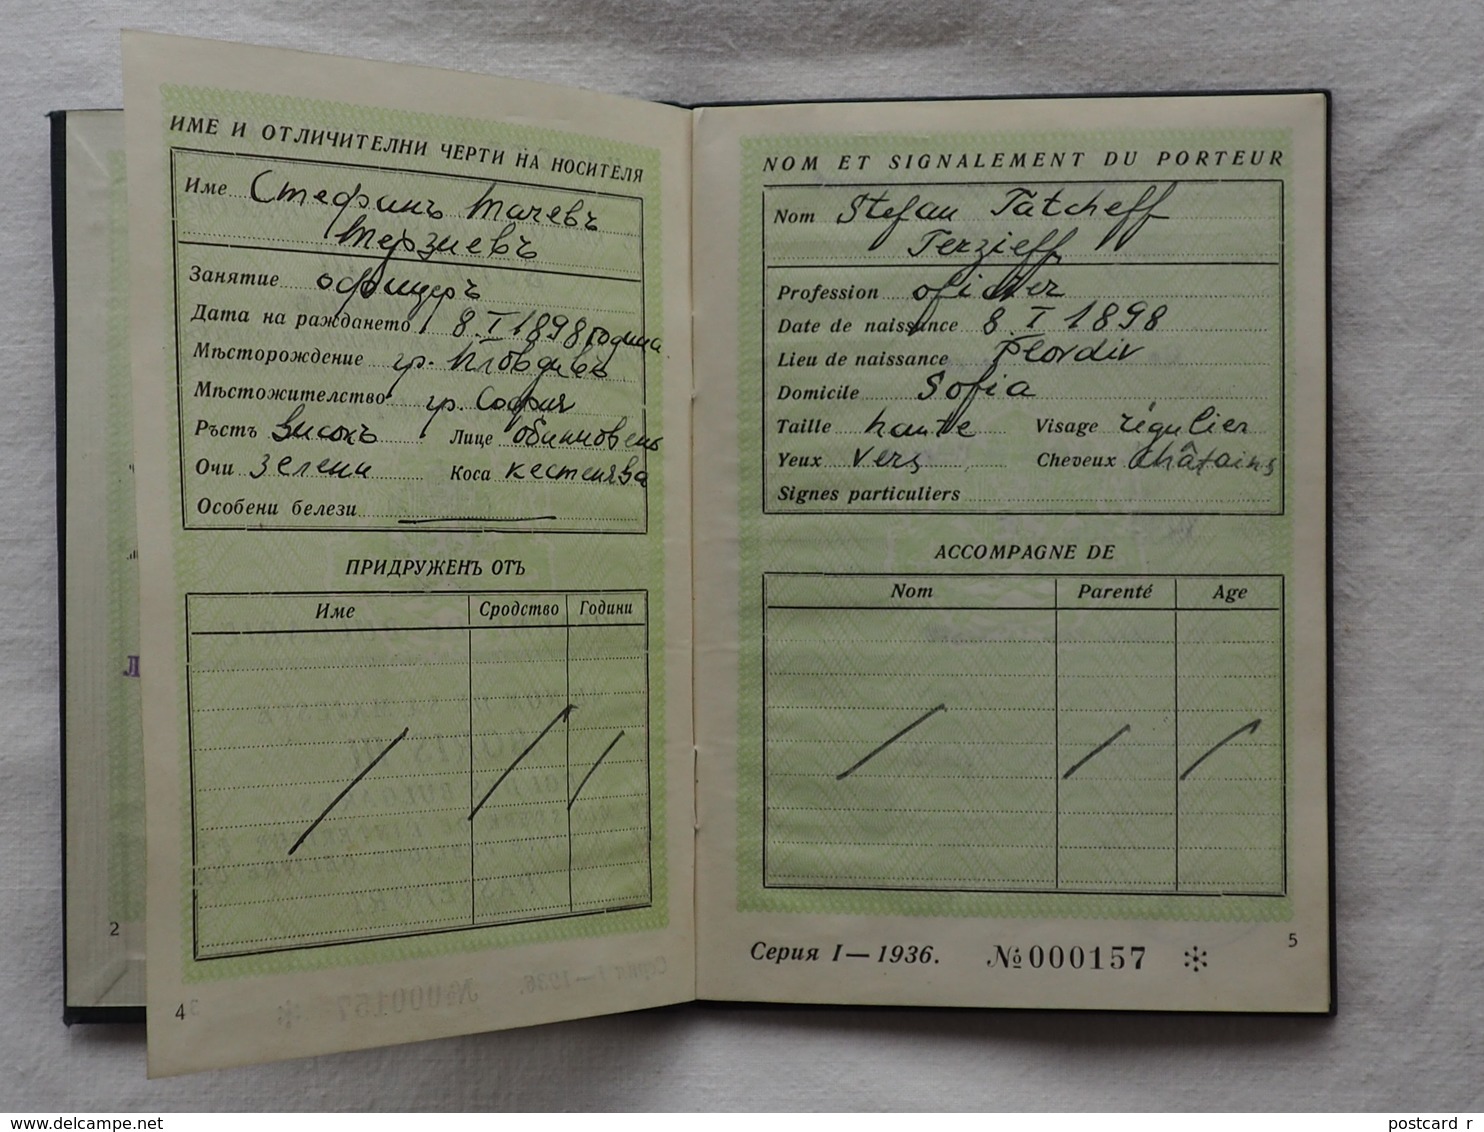 ИМЕ И ОТЛИЧИТЕЛНИ ЧЕРТИ НА НОСИТЕЛЯ
Име Стефанъ Тачевъ
Терзиевъ
Занятие офицеръ
Дата на раждането 8. I 1898 година
Мѣсторождение гр. Пловдивъ
Мѣстожителство гр. София
Ръстъ Високъ Лице Обикновено
Очи Зелени Коса Кестенява
Особени белези
ПРИДРУЖЕНЪ ОТЪ
Име Сродство Години
2
4
NOM ET SIGNALEMENT DU PORTEUR
Nom Stefan Tatcheff
Terzieff
Profession oficier
Date de naissance 8. I 1898
Lieu de naissance Plovdiv
Domicile Sofia
Taille haute Visage régulier
Yeux vers Cheveux châtains
Signes particuliers
ACCOMPAGNE DE
Nom Parenté Age
Серия I — 1936. № 000157 *
5
postcard r